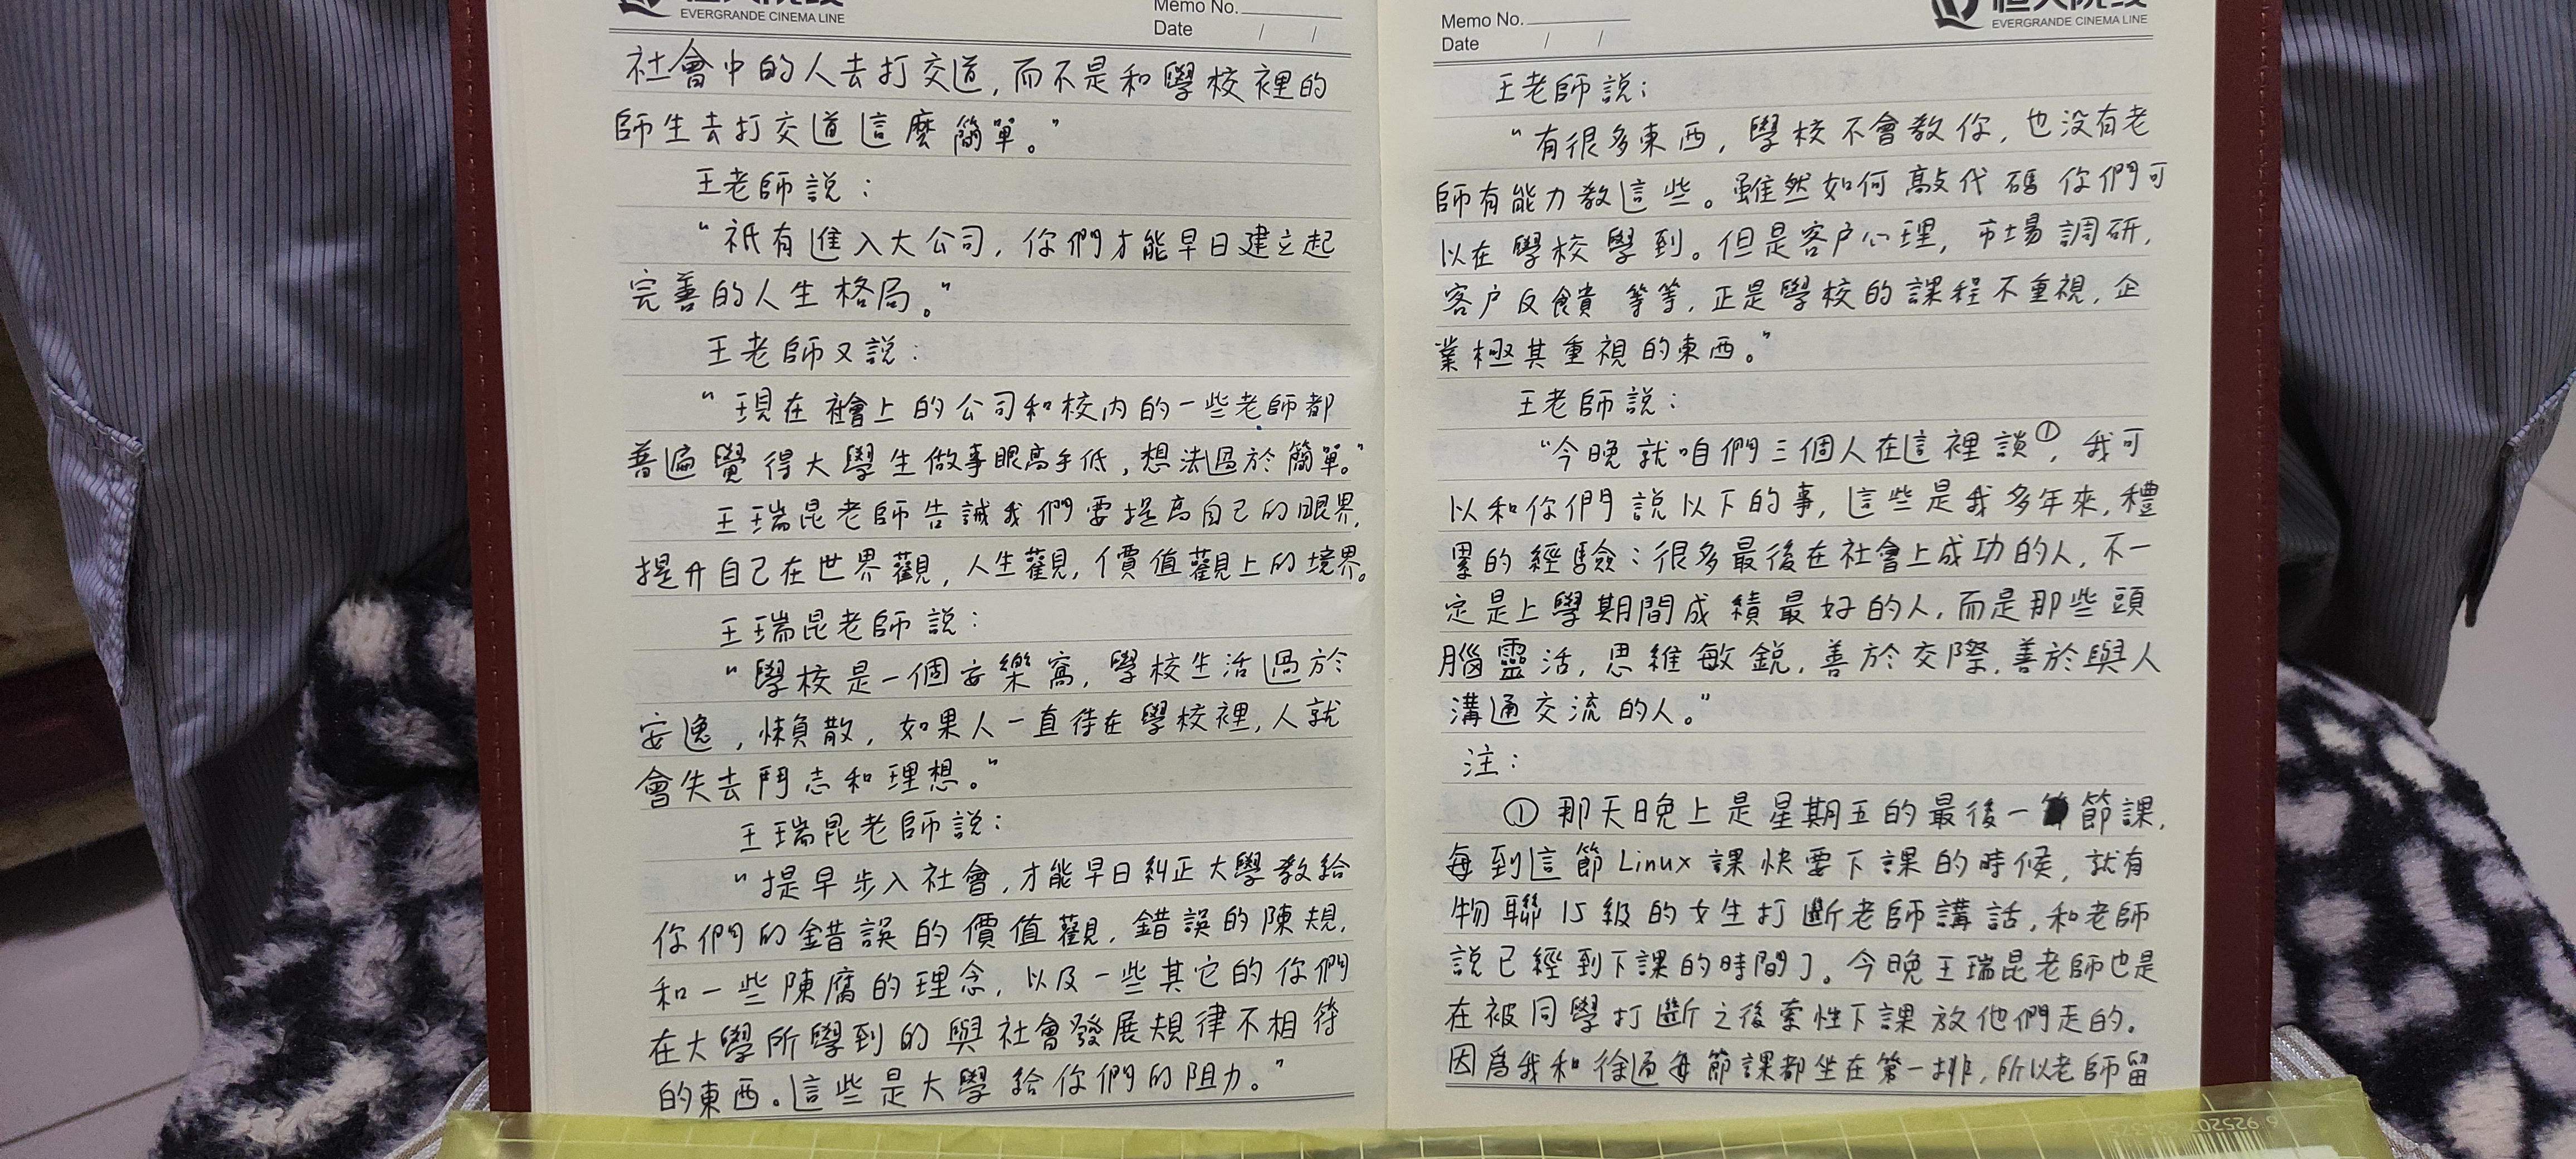 EVERGRANDE CINEMA LINE
Memo No.
Date / /
社會中的人去打交道,而不是和學校裡的
師生去打交道這麼簡單。"
王老師説:
"祇有進入大公司,你們才能早日建立起
完善的人生格局。"
王老師又説:
"現在社會上的公司和校内的一些老師都
普遍覺得大學生做事眼高手低,想法過於簡單。"
王瑞昆老師告誡我們要提高自己的眼界,
提升自己在世界觀,人生觀,價值觀上的境界。
王瑞昆老師説:
"學校是一個安樂窩,學校生活過於
安逸,懶散,如果人一直待在學校裡,人就
會失去鬥志和理想。"
王瑞昆老師説:
"提早步入社會,才能早日糾正大學教給
你們的錯誤的價值觀,錯誤的陳規,
和一些陳腐的理念,以及一些其它的你們
在大學所學到的與社會發展規律不相符
的東西。這些是大學給你們的阻力。"
Memo No.
Date / /
EVERGRANDE CINEMA LINE
王老師説:
"有很多東西,學校不會教你,也没有老
師有能力教這些。雖然如何敲代碼你們可
以在學校學到。但是客户心理,市場調研,
客户反饋等等,正是學校的課程不重視,企
業極其重視的東西。"
王老師説:
"今晚就咱們三個人在這裡談①,我可
以和你們説以下的事,這些是我多年來,積
累的經驗:很多最後在社會上成功的人,不一
定是上學期間成績最好的人,而是那些頭
腦靈活,思維敏鋭,善於交際,善於與人
溝通交流的人。"
注:
① 那天晚上是星期五的最後一節課,
每到這節Linux課快要下課的時候,就有
物聯15級的女生打斷老師講話,和老師
説已經到下課的時間了。今晚王瑞昆老師也是
在被同學打斷之後索性下課放他們走的。
因爲我和徐過每節課都坐在第一排,所以老師留
6 925207